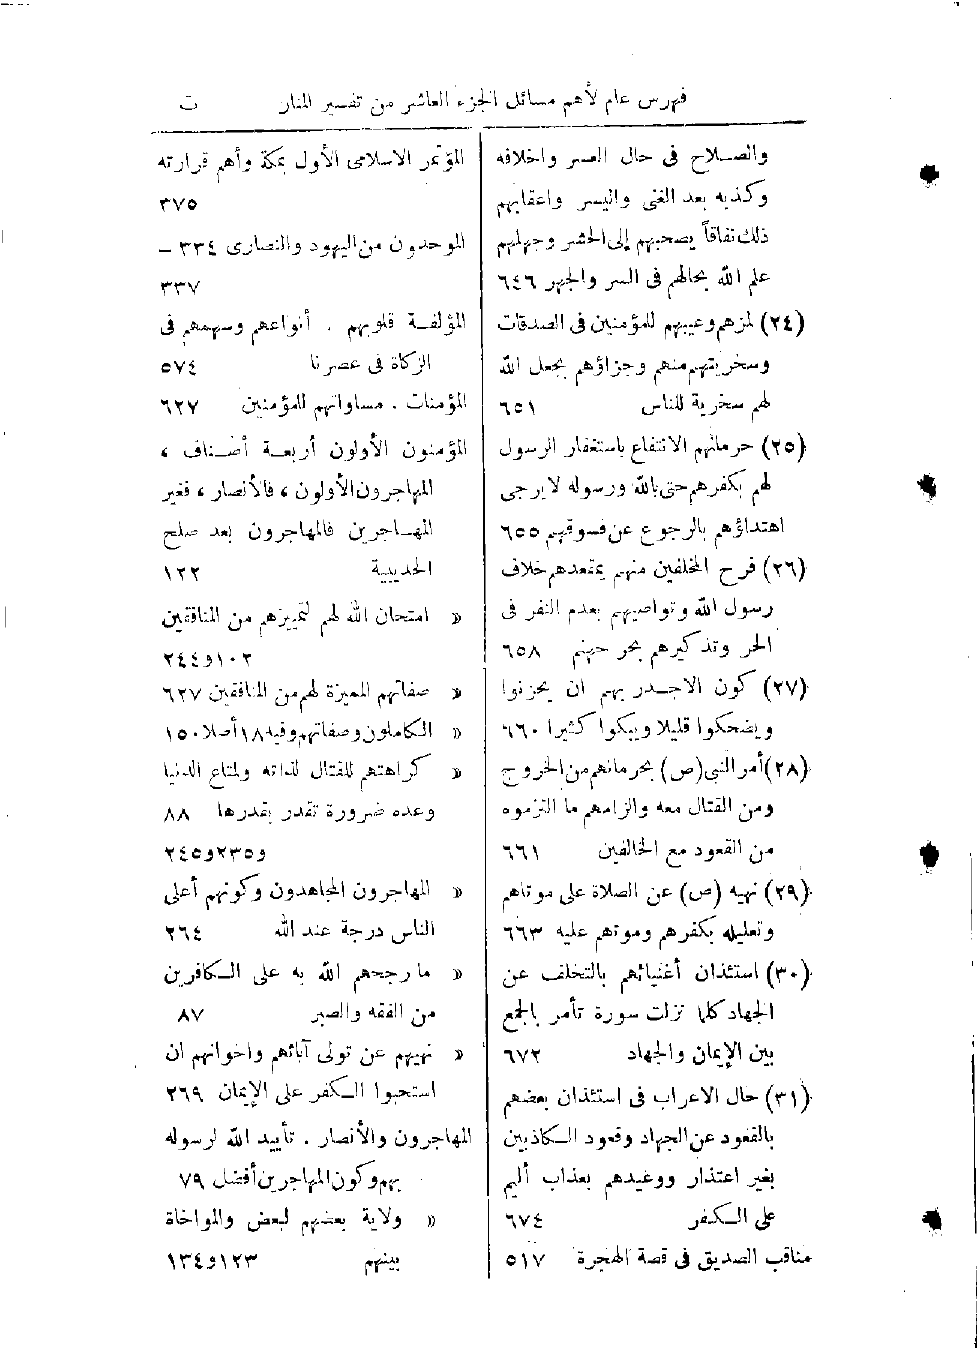 فهرس عام لأهم مسائل الجزء العاشر من تفسير المنار ت
والصلاح فى حال العسر واخلافه
وكذبه بعد الغنى واليسر واعقابهم
ذلك نفاقاً يصحبهم إلى الحشر وجهلهم
علم الله بحالهم فى السر والجهر ٦٤٦
(٢٤) لمزهم وعيبهم للمؤمنين فى الصدقات
وسخريتهم منهم وجزاؤهم بجعل الله
لهم سخرية للناس ٦٥١
(٢٥) حرمانهم الانتفاع باستغفار الرسول
لهم بكفرهم حتى بالله ورسوله لا يرجى
اهتداؤهم بالرجوع عن فسوقهم ٦٥٥
(٢٦) فرح المخلفين منهم بمقعدهم خلاف
رسول الله وتواصيهم بعدم النفر فى
الحر وتذكيرهم بحر جهنم ٦٥٨
(٢٧) كون الاجدر بهم ان يحزنوا
ويضحكوا قليلا ويبكوا كثيرا ٦٦٠
(٢٨) أمر النبى (ص) بحرمانهم من الخروج
ومن القتال معه والزامهم ما التزموه
من القعود مع الخالفين ٦٦١
(٢٩) نهيه (ص) عن الصلاة على موتاهم
وتعليله بكفرهم وموتهم عليه ٦٦٣
(٣٠) استئذان أغنيائهم بالتخلف عن
الجهاد كلما نزلت سورة تأمر بالجمع
بين الإيمان والجهاد ٦٧٢
(٣١) حال الاعراب فى استئذان بعضهم
بالقعود عن الجهاد وقعود الكاذبين
بغير اعتذار ووعيدهم بعذاب أليم
على الكفر ٦٧٤
مناقب الصديق فى قصة الهجرة ٥١٧
المؤتمر الاسلامى الأول بمكة وأهم قرارته
٣٧٥
الموحدون من اليهود والنصارى ٣٣٤ –
٣٣٧
المؤلفة قلوبهم . أنواعهم وسهمهم فى
الزكاة فى عصرنا ٥٧٤
المؤمنات . مساواتهم للمؤمنين ٦٢٧
المؤمنون الأولون أربعة أصناف ،
المهاجرون الأولون ، فالأنصار ، فغير
المهاجرين فالمهاجرون بعد صلح
الحديبية ١٢٢
« امتحان الله لهم لتمييزهم من المنافقين
١٠٢و٢٤٤
« صفاتهم المميزة لهم من المنافقين ٦٢٧
« الكاملون وصفاتهم وفيه ١٨ أصلا ١٥٠
« كراهتهم للقتال لذاته ولمتاع الدنيا
وعده ضرورة تقدر بقدرها ٨٨
و٢٣٥و٢٤٥
« المهاجرون المجاهدون وكونهم أعلى
الناس درجة عند الله ٢٦٤
« ما رجحهم الله به على الكافرين
من الفقه والصبر ٨٧
« نهيهم عن تولى آبائهم واخوانهم ان
استحبوا الكفر على الإيمان ٢٦٩
المهاجرون والأنصار . تأييد الله لرسوله
بهم وكون المهاجرين أفضل ٧٩
« ولاية بعضهم لبعض والمواخاة
بينهم ١٢٣و١٣٤